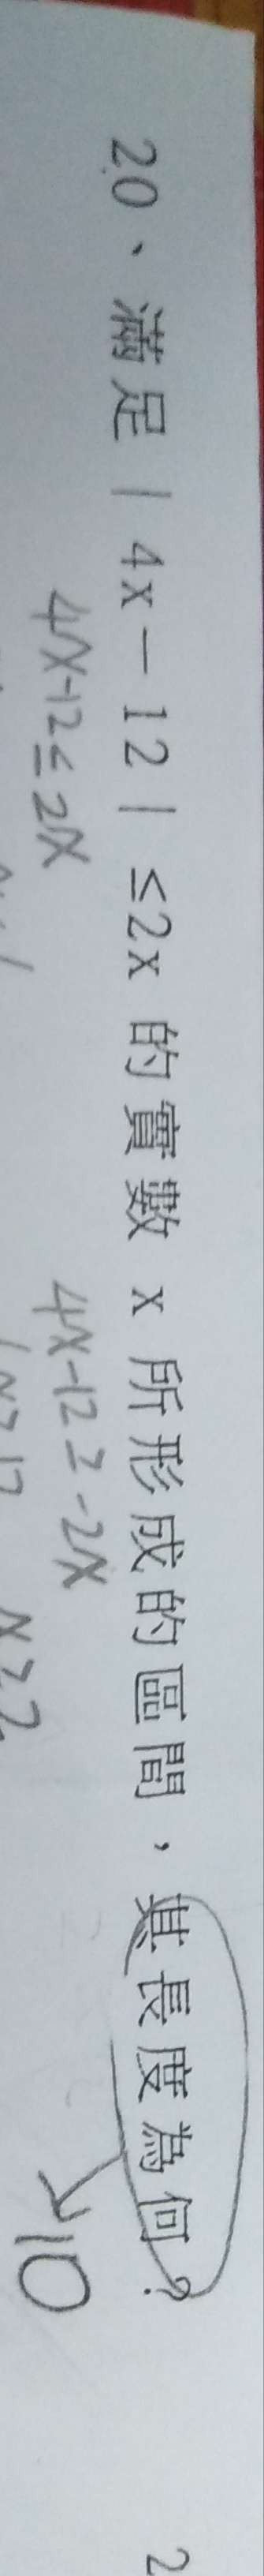 20、滿足|4x－12|≤2x 的實數 x 所形成的區間，其長度為何？ 2
4x-12≤2x 4x-12≥-2x
x≥2
10